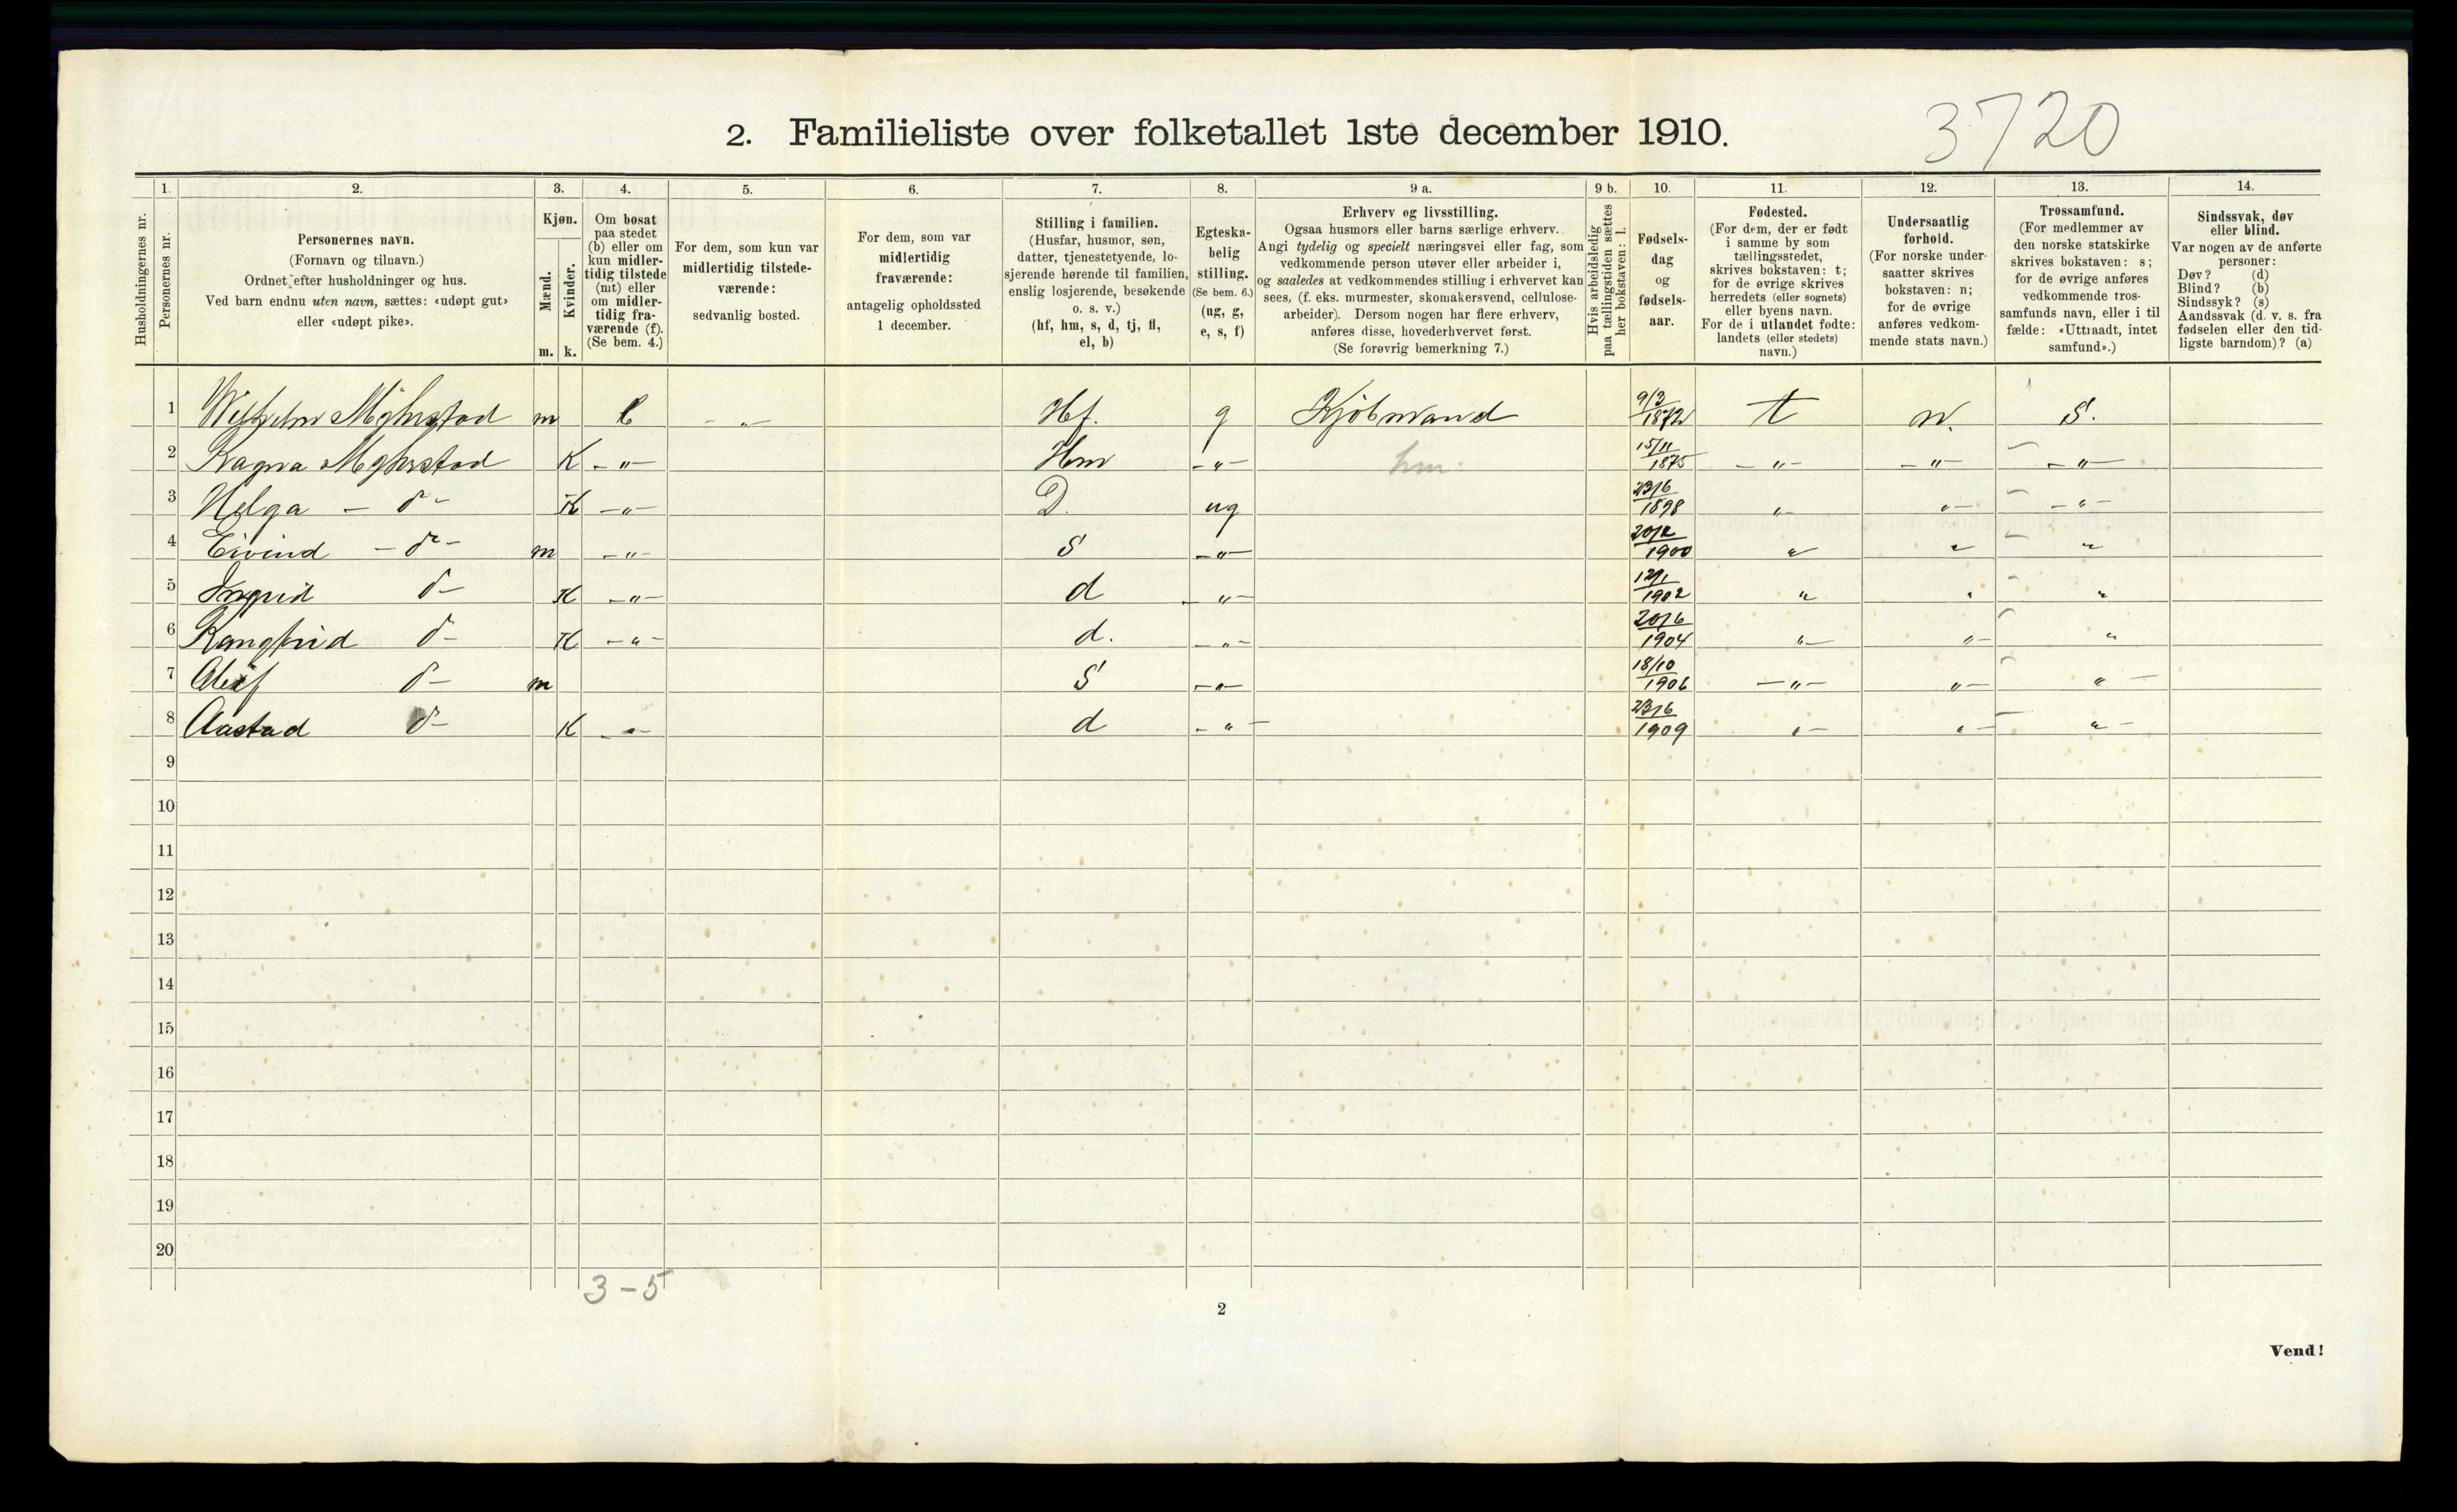 3720
2. Familieliste over folketallet 1ste december 1910.
1. 2. 3. 4. 5. 6. 7. 8. 9 a. 9 b. 10. 11. 12. 13. 14.
Husholdningernes nr.
Personernes nr.
Personernes navn.
(Fornavn og tilnavn.)
Ordnet efter husholdninger og hus.
Ved barn endnu uten navn, sættes: «udøpt gut»
eller «udøpt pike».
Kjøn.
Mænd.
m.
Kvinder.
k.
Om bosat
paa stedet
(b) eller om
kun midler-
tidig tilstede
(mt) eller
om midler-
tidig fra-
værende (f).
(Se bem. 4.)
For dem, som kun var
midlertidig tilstede-
værende:
sedvanlig bosted.
For dem, som var
midlertidig
fraværende:
antagelig opholdssted
1 december.
Stilling i familien.
(Husfar, husmor, søn,
datter, tjenestetyende, lo-
sjerende hørende til familien,
enslig losjerende, besøkende
o. s. v.)
(hf, hm, s, d, tj, fl,
el, b)
Egteska-
belig
stilling.
(Se bem. 6.)
(ug, g,
e, s, f)
Erhverv og livsstilling.
Ogsaa husmors eller barns særlige erhverv.
Angi tydelig og specielt næringsvei eller fag, som
vedkommende person utøver eller arbeider i,
og saaledes at vedkommendes stilling i erhvervet kan
sees, (f. eks. murmester, skomakersvend, cellulose-
arbeider). Dersom nogen har flere erhverv,
anføres disse, hovederhvervet først.
(Se forøvrig bemerkning 7.)
Hvis arbeidsledig
paa tællingstiden sættes
her bokstaven: l.
Fødsels-
dag
og
fødsels-
aar.
Fødested.
(For dem, der er født
i samme by som
tællingsstedet,
skrives bokstaven: t;
for de øvrige skrives
herredets (eller sognets)
eller byens navn.
For de i utlandet fødte:
landets (eller stedets)
navn.)
Undersaatlig
forhold.
(For norske under-
saatter skrives
bokstaven: n;
for de øvrige
anføres vedkom-
mende stats navn.)
Trossamfund.
(For medlemmer av
den norske statskirke
skrives bokstaven: s;
for de øvrige anføres
vedkommende tros-
samfunds navn, eller i til-
fælde: «Uttraadt, intet
samfund».)
Sindssvak, døv
eller blind.
Var nogen av de anførte
personer:
Døv? (d)
Blind? (b)
Sindssyk? (s)
Aandssvak (d. v. s. fra
fødselen eller den tid-
ligste barndom)? (a)
1 Wilhelm m b - " - Hf. g Kjöbmand 9/3 1872 t n. S.
2 Ragna K - " - Hm - " - hm. 15/11 1875 - " - - " - - " -
3 Helga - d° - K - " - D. ug 23/6 1898 " - " - - " -
4 Eivind - d° - m - " - S - " - 20/2 1900 " " "
5 Ingrid d° - K - " - d - " - 12/1 1902 " " "
6 d° - K - " - d. - " - 20/6 1904 " - " - "
7 d° - m S - " - 18/10 1906 - " - " - " -
8 Aastad d° - K - " - d - " - 23/6 1909 " - " - " -
9
10
11
12
13
14
15
16
17
18
19
20
3 - 5
2
Vend!